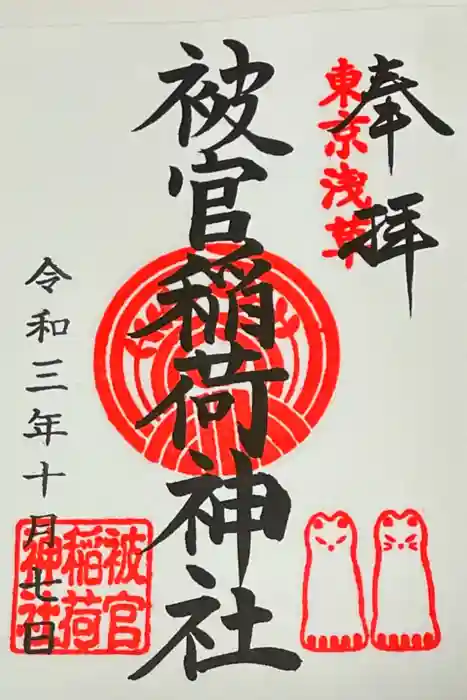 奉拝
東京浅草
被官稲荷神社
令和三年十月七日
被官
稲荷
神社